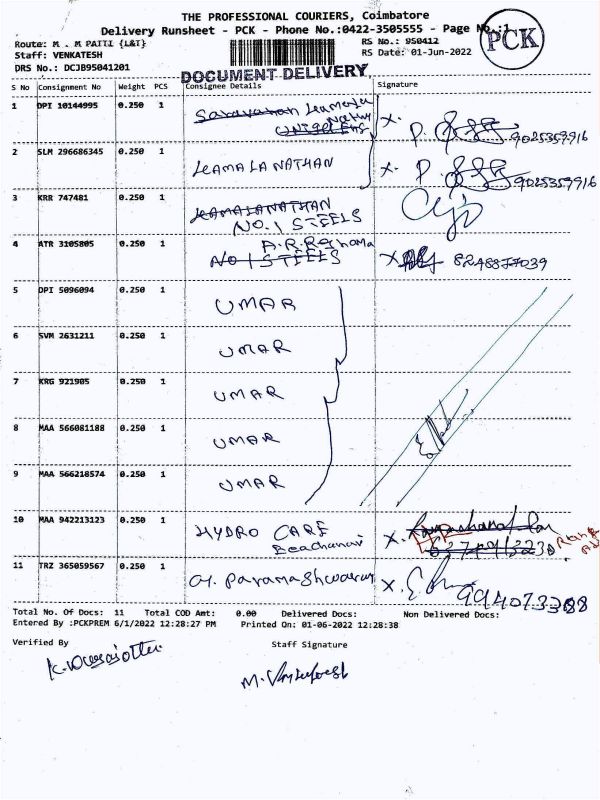 THE PROFESSIONAL COURIERS, Coimbatore
Delivery Runsheet - PCK - Phone No.:0422-3505555 - Page No.:1
PCK
Route: M . M PATTI {L&T}
RS No.: 950412
Staff: VENKATESH
RS Date: 01-Jun-2022
DRS No.: DCJB95041201
DOCUMENT DELIVERY
S No Consignment No Weight PCS Consignee Details Signature
1 DPI 10144995 0.250 1
9025359916
2 SLM 296686345 0.250 1 KAMALANATHAN X. P. 9025359916
3 KRR 747481 0.250 1 KAMALANATHAN
NO.1 STEELS
4 ATR 3105805 0.250 1 NO 1 STEELS X
5 DPI 5096094 0.250 1 UMAR
6 SVM 2631211 0.250 1 UMAR
7 KRG 921905 0.250 1 UMAR
8 MAA 566081188 0.250 1 UMAR
9 MAA 566218574 0.250 1 UMAR
10 MAA 942213123 0.250 1 HYDRO CARE X.
11 TRZ 365059567 0.250 1 X.
Total No. Of Docs: 11 Total COD Amt: 0.00 Delivered Docs: Non Delivered Docs:
Entered By :PCKPREM 6/1/2022 12:28:27 PM Printed On: 01-06-2022 12:28:38
Verified By Staff Signature